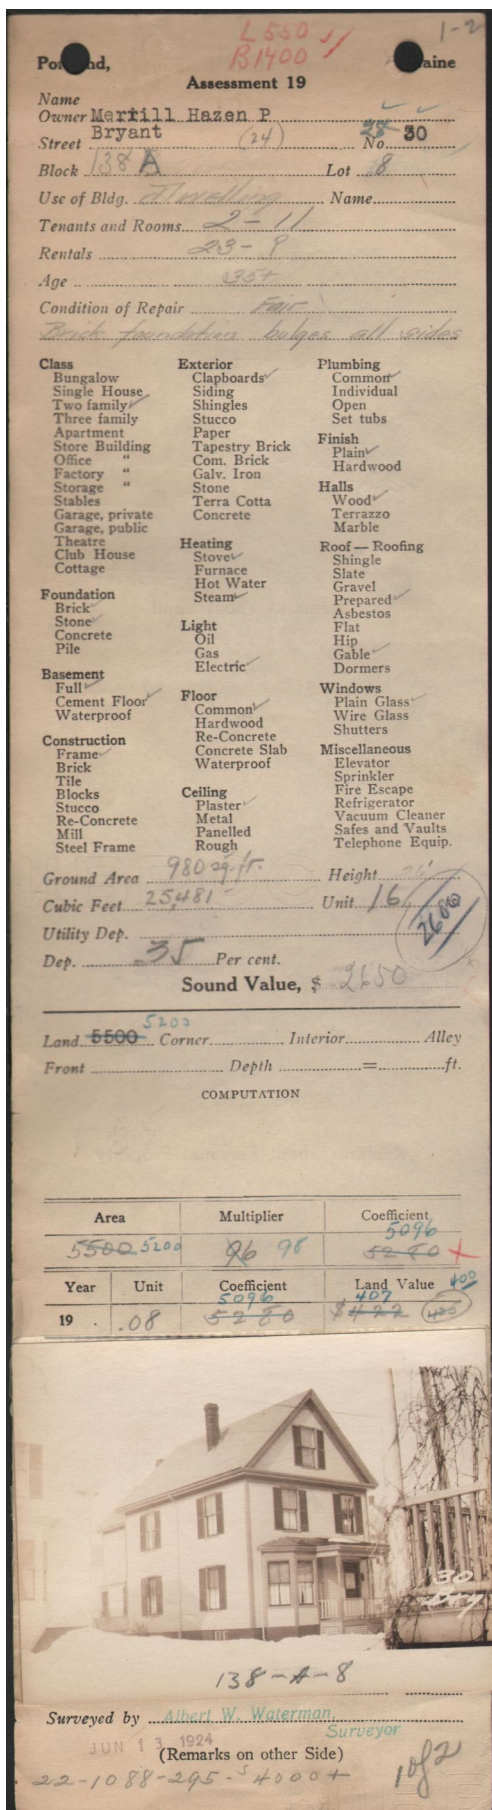 L 550
B 1400
1-2
Portland, Maine
Assessment 19
Name
Owner Merrill Hazen P
Street Bryant (24) No. 28-30
Block 138 A Lot 8
Use of Bldg. Dwelling Name
Tenants and Rooms 2-11
Rentals 23-9
Age 35+
Condition of Repair Fair
Brick foundation bulges all sides
Class
Bungalow
Single House
Two family ✓
Three family
Apartment
Store Building
Office "
Factory "
Storage "
Stables
Garage, private
Garage, public
Theatre
Club House
Cottage
Foundation
Brick ✓
Stone ✓
Concrete
Pile
Basement
Full ✓
Cement Floor ✓
Waterproof
Construction
Frame ✓
Brick
Tile
Blocks
Stucco
Re-Concrete
Mill
Steel Frame
Exterior
Clapboards ✓
Siding
Shingles
Stucco
Paper
Tapestry Brick
Com. Brick
Galv. Iron
Stone
Terra Cotta
Concrete
Heating
Stove ✓
Furnace
Hot Water
Steam ✓
Light
Oil
Gas
Electric ✓
Floor
Common ✓
Hardwood
Re-Concrete
Concrete Slab
Waterproof
Ceiling
Plaster ✓
Metal
Panelled
Rough
Plumbing
Common ✓
Individual
Open
Set tubs
Finish
Plain ✓
Hardwood
Halls
Wood ✓
Terrazzo
Marble
Roof — Roofing
Shingle
Slate
Gravel
Prepared ✓
Asbestos
Flat
Hip
Gable ✓
Dormers
Windows
Plain Glass ✓
Wire Glass
Shutters
Miscellaneous
Elevator
Sprinkler
Fire Escape
Refrigerator
Vacuum Cleaner
Safes and Vaults
Telephone Equip.
Ground Area 980 sq. ft. Height
Cubic Feet 25,481 Unit 16
Utility Dep.
Dep. 35 Per cent.
Sound Value, $ 2650
5200
Land 5500 Corner Interior Alley
Front Depth = ft.
COMPUTATION
Area Multiplier Coefficient
5096
5500 5200 96 98 5280
Year Unit Coefficient Land Value 400
5096 407
19 . .08 5280 $422
30
138-A-8
Surveyed by Albert W. Waterman.
Surveyor
JUN 13 1924
(Remarks on other Side)
22-1088-295-$4000+
1 of 2